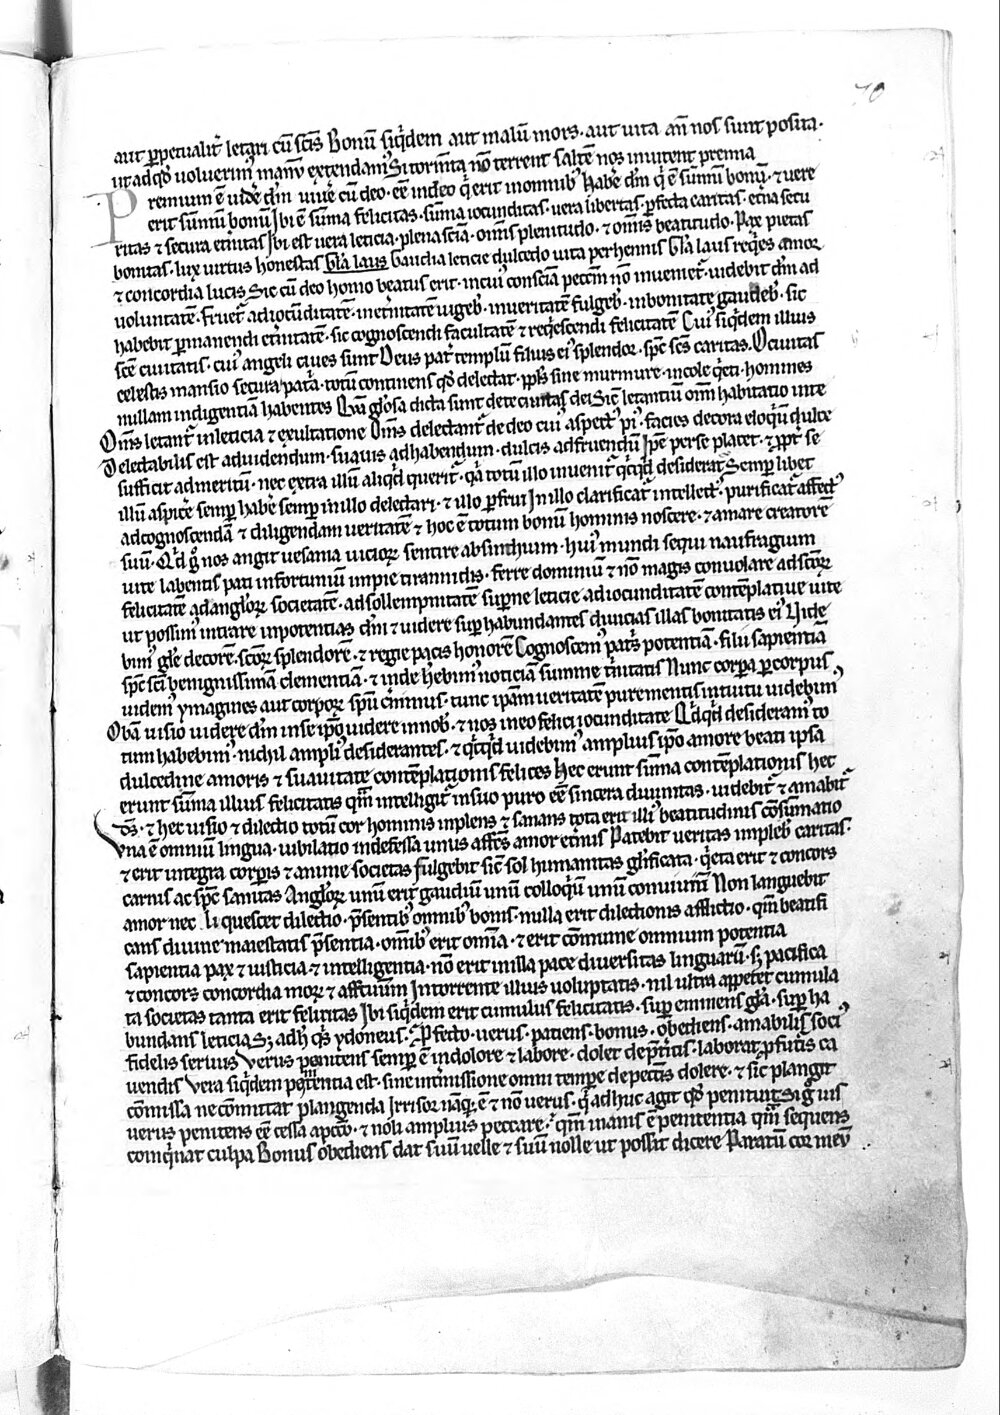 70
aut ꝑpetualit̄ letari cū sc̄is Bonū siq̇dem aut malū mors · aut uita an̄ nos sunt posita ·
ut ad qd̄ uoluerim᷒ manū extendam᷒ Si torm̄ta nō terrent saltē nos inuitent premia
Premium ē uidēr dm̄ uiuēr cū deo · eē in deo q̇ erit in omnib᷒ habēr dm̄ q̇ ē sūmū bonū · ⁊ uere
erit sūmū bonū Ibi ē sūma felicitas · sūma iocunditas · uera libertas · ꝑfecta caritas · et̄na secu
ritas ⁊ secura et̄nitas Ibi est uera leticia · plena scīa · om̄is plenitudo · ⁊ om̄is beatitudo · Pax pietas
bonitas · lux uirtus honestas gaudia leticie dulcedo uita perhennis gl̄a laus req̇es amor
⁊ concordia lucis Sic cū deo homo beatus erit · in cui᷒ consciā pecc̄m nō inuenier̄ · uidebit dm̄ ad
uoluntatē · fruet̄ ad iocūditatē · in et̄nitate uigeb̄ · in ueritate fulgeb̄ · in bonitate gaudeb̄ · sic
habebit ꝑmanendi et̄nitatē · sic cognoscendi facultatē ⁊ req̇escendi felicitatē Ciui᷒ siq̇dem illius
sc̄e ciuitatis · cui᷒ angeli ciues sunt Deus pat̄ templū filius ei᷒ splendor · sp̄c sc̄s caritas · O ciuitas
celestis mansio secura patr̄a · totū continens qd̄ delectat · ppl̄s sine murmure · incole q̇eti · homines
nullam indigentiā habentes Quā gl̄osa dicta sunt de te ciuitas dei Sic̄ letantiū om̄m habitatio in te
Om̄s letant̄ in leticia ⁊ exultatione Om̄s delectant̄ de deo cui᷒ aspect᷒ pi᷒ · facies decora eloq̇ū dulce
Delectabilis est ad uidendum · suauis ad habendum · dulcis ad fruendū Ip̄e per se placet · ⁊ ꝓpt̄ se
sufficit ad meritū · nec extra illū aliq̇d querit̄ · q̇a totū illo inuenit̄ q̇cq̇d desiderat̄ Semꝑ libet
illū aspicēr semꝑ habēr semꝑ in illo delectari · ⁊ illo ꝑfrui In illo clarificat̄ intellect᷒ · purificat̄ affect᷒
ad cognoscendā ⁊ diligendam ueritatē ⁊ hoc ē totum bonū hominis noscere · ⁊ amare creatorē
suū · Q̇d g̊ nos angit uesania uicioꝝ sentire absinthium · hui᷒ mundi sequi naufragium
uite labentis pati infortuniū impie tirannidis · ferre dominiū ⁊ nō magis conuolare ad sc̄oꝝ
felicitatē ad angl̄oꝝ societatē · ad sollempnitatē suꝑne leticie ad iocunditatē contēplatiue uite
ut possim᷒ intrare in potentias dn̄i ⁊ uidere suꝑhabundantes diuicias illas bonitatis ei᷒ Uide
bim᷒ gl̄e decorē · sc̄oꝝ splendorē · ⁊ regie pacis honorē Cognoscem᷒ pat̄s potentiā · filii sapientiā
sp̄c sc̄i benignissimā clementiā · ⁊ inde hēbim᷒ noticiā summe t̄nitatis Nunc corꝑa ꝑ corpus
uidem᷒ ymagines aut corpoꝝ sp̄u cernim᷒ · tunc ip̄am ueritatē pure mentis intuitu uidebim᷒
O bā uisio uidere dm̄ in se ip̄o uidere in nob̄ · ⁊ nos in eo felici iocunditate Q̇dq̇d desideram᷒ to
tum habebim᷒ · nichil ampli᷒ desiderantes · ⁊ q̇cq̇d uidebim᷒ amplius ip̄o amore beati ipsa
dulcedine amoris ⁊ suauitate contēplationis felices Hec erunt sūma contēplationis hec
erunt sūma illius felicitatis qm̄ intelligit̄ in suo puro eē sincera diuinitas · uidebit̄ ⁊ amabit̄
ds̄ · ⁊ hec uisio ⁊ dilectio totū cor hominis inplens ⁊ sanans tota erit illi᷒ beatitudinis cōsūmatio
Una ē omniū lingua · iubilatio indefessa unus affc̄s amor et̄nus Patebit ueritas impleb̄ caritas ·
⁊ erit integra corꝑis ⁊ anime societas Fulgebit sic̄ sol humanitas gl̄ificata · q̇eta erit ⁊ concors
carnis ac sp̄c sanitas Angl̄oꝝ unū erit gaudiū unū colloq̇ū unū conuiuiū Non languebit
amor nec liquescet dilectio · p̄sentib᷒ omnib᷒ bonis · nulla erit dilectionis afflictio · qm̄ beatifi
cans diuine maiestatis p̄sentia · om̄ib᷒ erit om̄ia · ⁊ erit cōmune omnium potentia
sapientia pax ⁊ iusticia · ⁊ intelligentia · nō erit in illa pace diuersitas linguarū · sꝫ pacifica
⁊ concors concordia moꝝ ⁊ affectuum In torrente illius uoluptatis · nil ultra appetet̄ cumula
ta societas tanta erit felicitas Ibi siq̇dem erit cumulus felicitatis · suꝑeminens gl̄a · suꝑha
bundans leticia Sꝫ ad hꝫ q̇s ydoneus · Ꝓfecto · uerus · patiens · bonus · obediens · amabilis soci᷒
fidelis seruus Verus penitens semꝑ ē in dolore ⁊ labore · dolet de p̄t̄itis · laborat ꝓ fut̄is ca
uendis Vera siq̇dem penitentia est · sine int̄missione omni tempore de pecc̄is dolere · ⁊ sic plangit
cōmissa ne cōmittat plangenda Irrisor nāqꝫ ē ⁊ nō uerus · q̇ adhuc agit qd̄ penituit Si g̊ uis
uerus penitens eē cessa a pecc̄o · ⁊ noli amplius peccare · qm̄ inanis ē penitentia qm̄ sequens
coinq̇nat culpa Bonus obediens dat suū uelle ⁊ suū nolle ut possit dicere Paratū cor meū